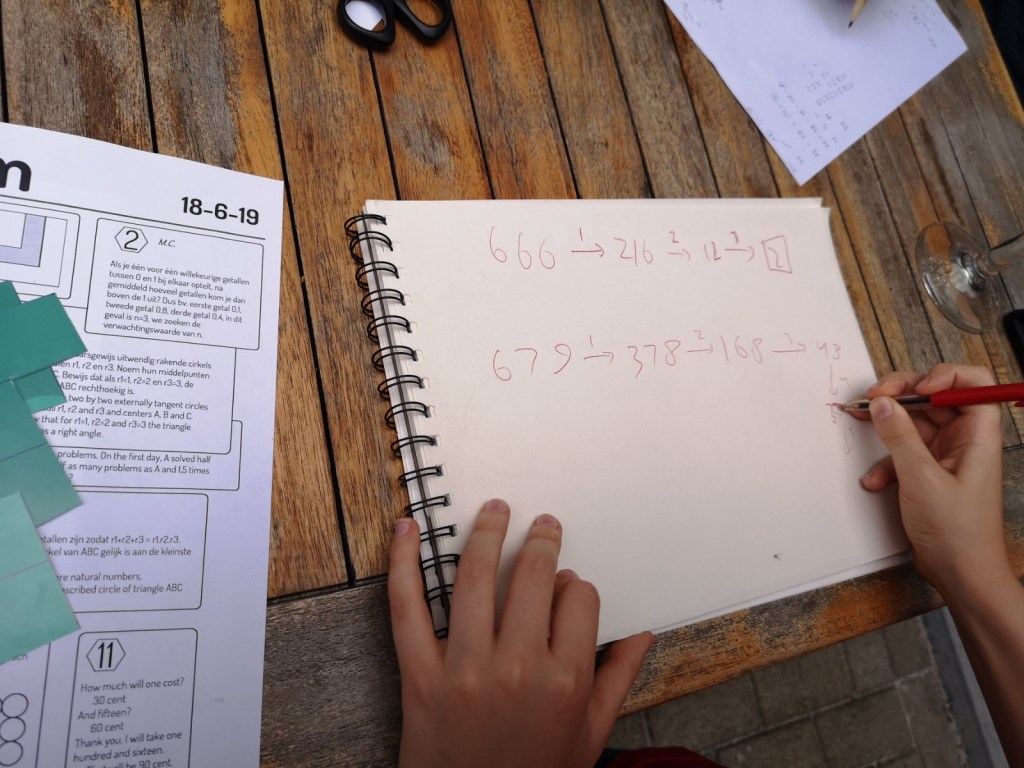 m
18-6-19
2
M.C.
Als je één voor één willekeurige getallen
tussen 0 en 1 bij elkaar optelt, na
gemiddeld hoeveel getallen kom je dan
boven de 1 uit? Dus bv. eerste getal 0,1,
tweede getal 0,8, derde getal 0,4, in dit
geval is n=3, we zoeken de
verwachtingswaarde van n.
arsgewijs uitwendig rakende cirkels
en r1, r2 en r3. Noem hun middelpunten
C. Bewijs dat als r1=1, r2=2 en r3=3, de
ABC rechthoekig is.
two by two externally tangent circles
r1, r2 and r3 and centers A, B and C.
that for r1=1, r2=2 and r3=3 the triangle
as a right angle.
problems. On the first day, A solved half
if as many problems as A and 1,5 times
?
tallen zijn zodat r1+r2+r3 = r1.r2.r3.
kel van ABC gelijk is aan de kleinste
re natural numbers,
scribed circle of triangle ABC
11
How much will one cost?
30 cent
And fifteen?
60 cent
Thank you, I will take one
hundred and sixteen.
will be 90 cent.
666 1→ 216 2→ 12 3→ 2
679 1→ 378 2→ 168 3→ 48